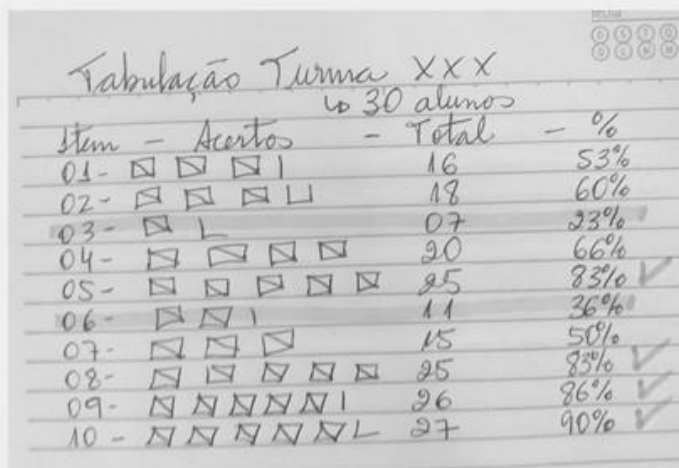 Tabulação Turma XXX
↳ 30 alunos
Item - Acertos - Total - %
01- 16 53%
02- 18 60%
03- 07 23%
04- 20 66%
05- 25 83% ✓
06- 11 36%
07- 15 50%
08- 25 83% ✓
09- 26 86% ✓
10- 27 90% ✓